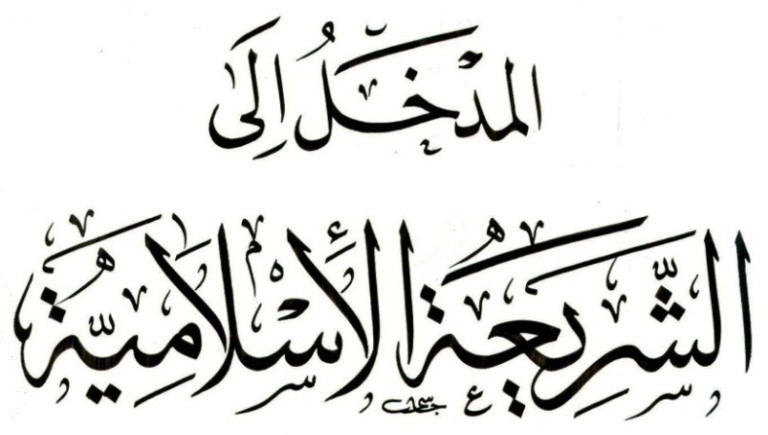 المدخل إلى
الشريعة الإسلامية